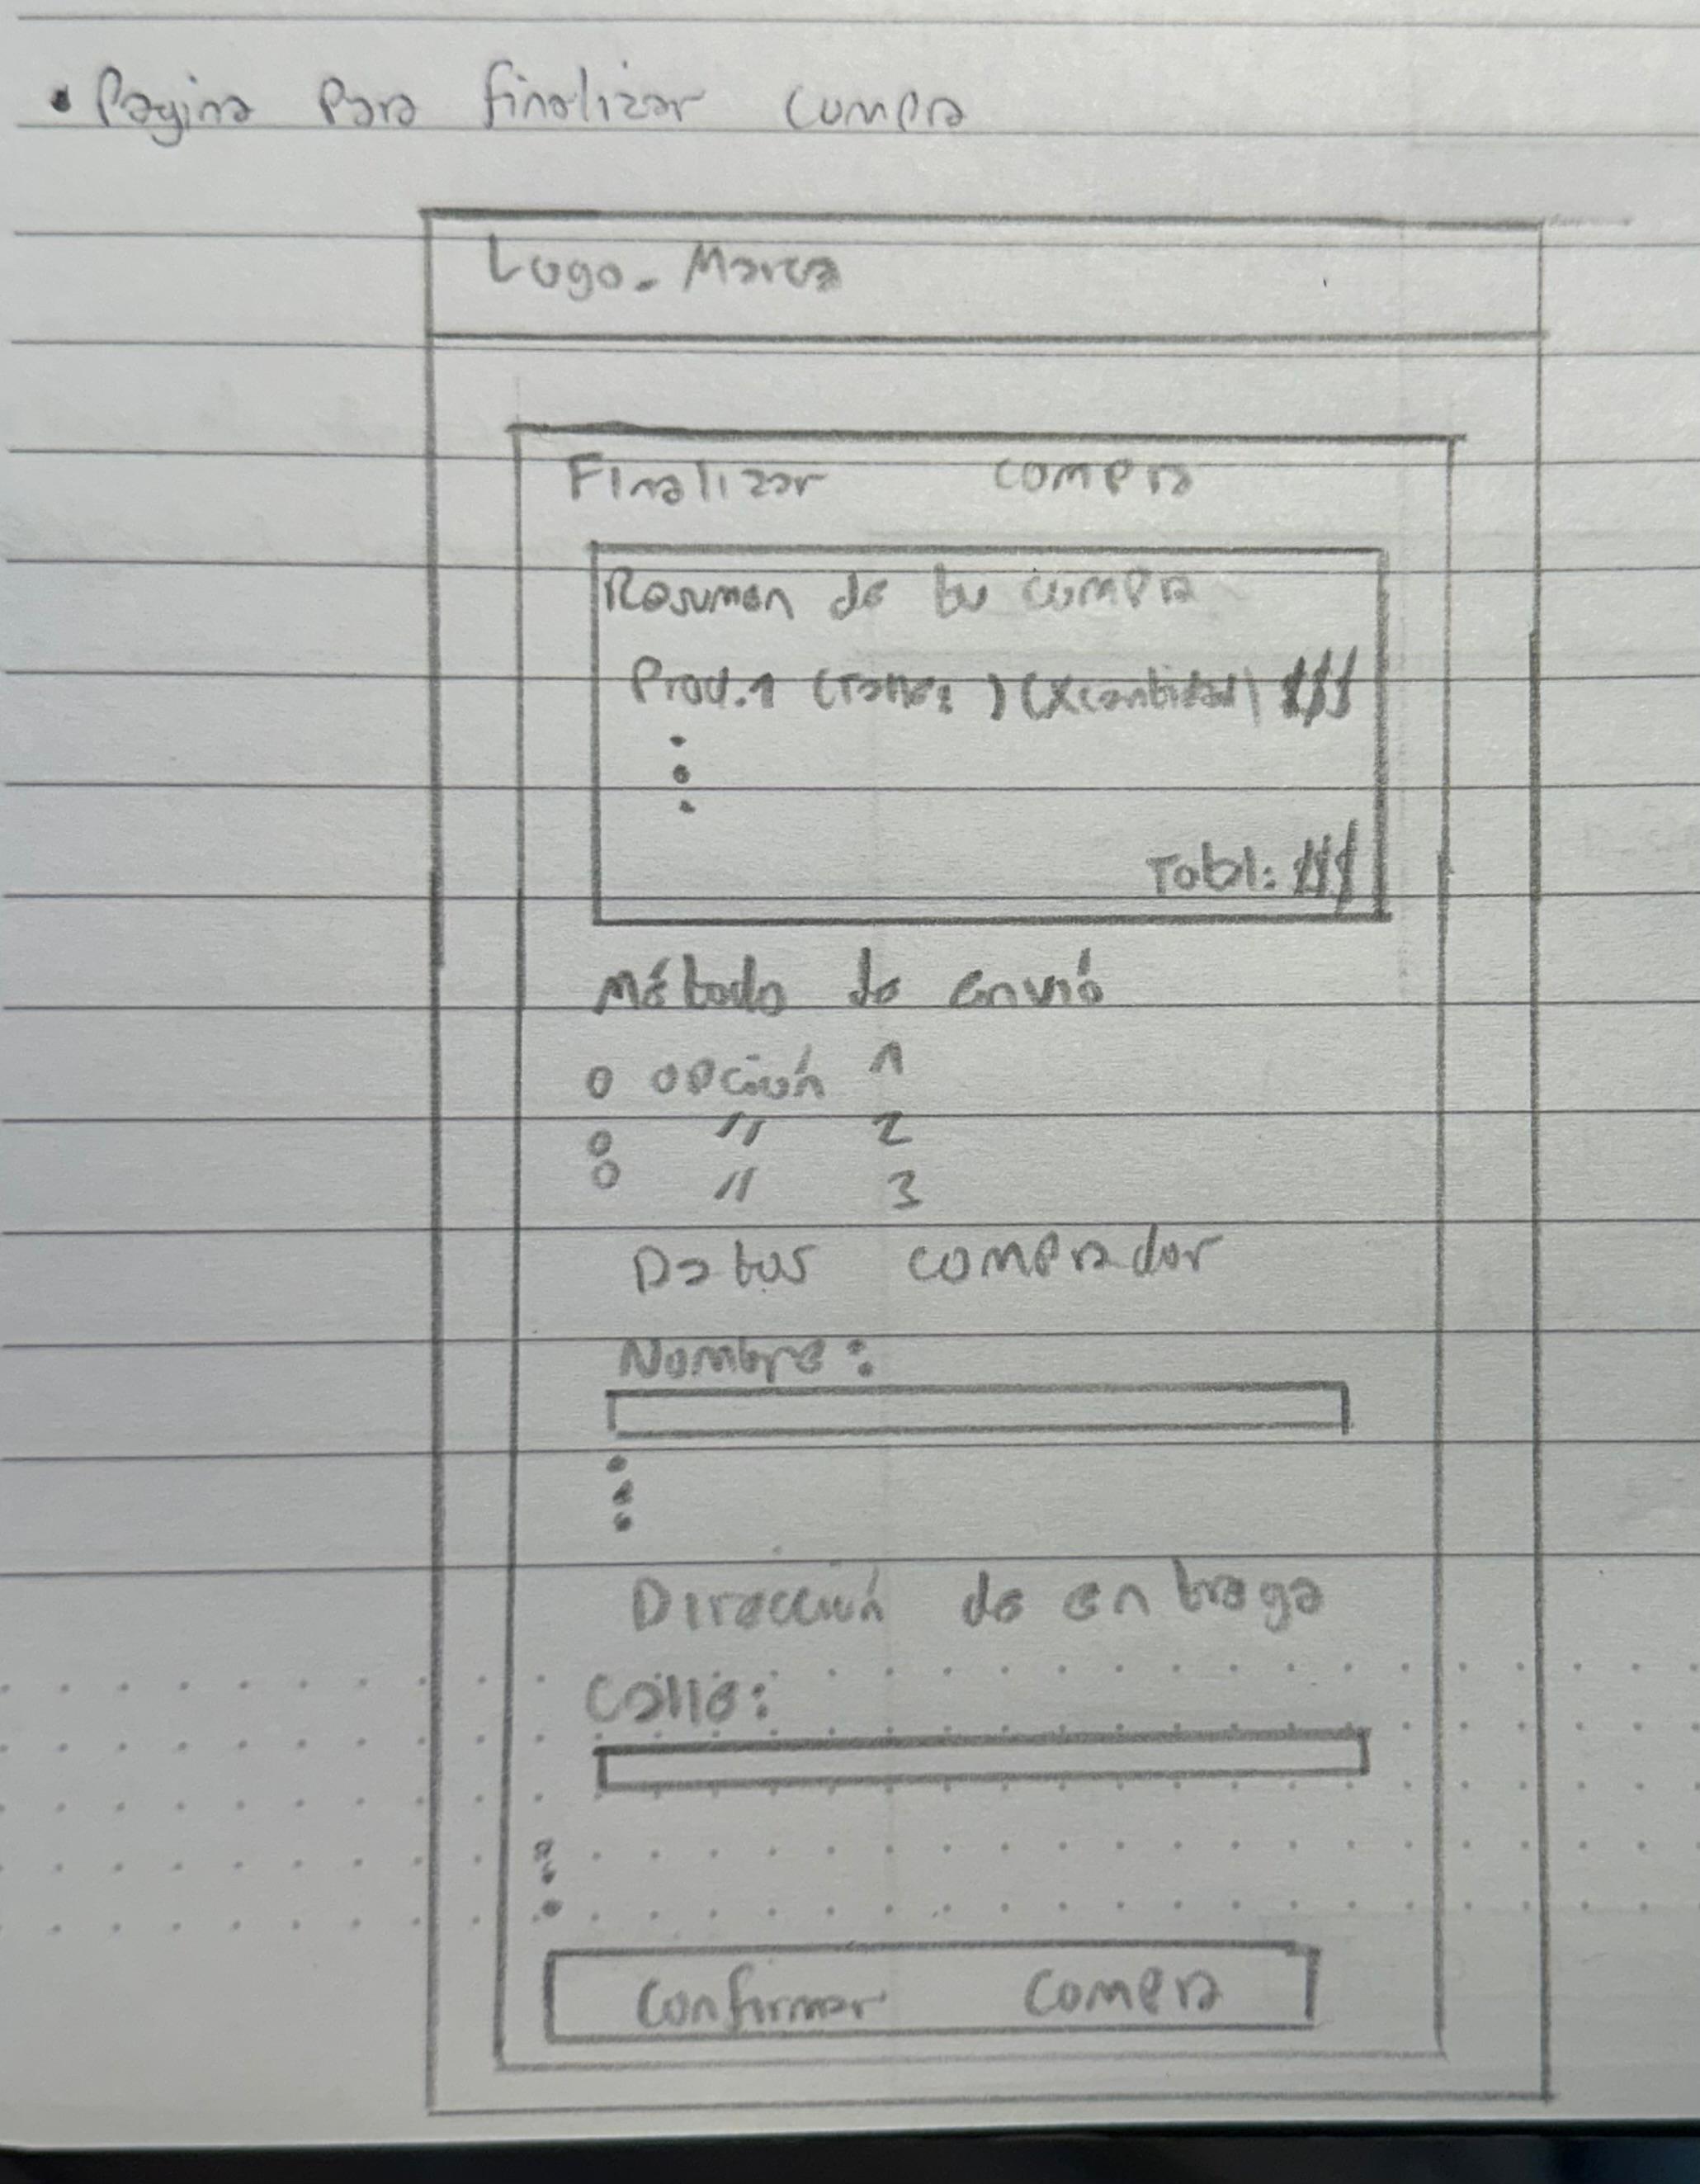 • Pagina para finalizar compra
Logo - Marca
Finalizar compra
Resumen de tu compra
Prod. 1 (Talle: ) (x cantidad) $$$
Total: $$$
Método de envió
o opción 1
o " 2
o " 3
Datos comprador
Nombre:
Dirección de entrega
Calle:
Confirmar compra